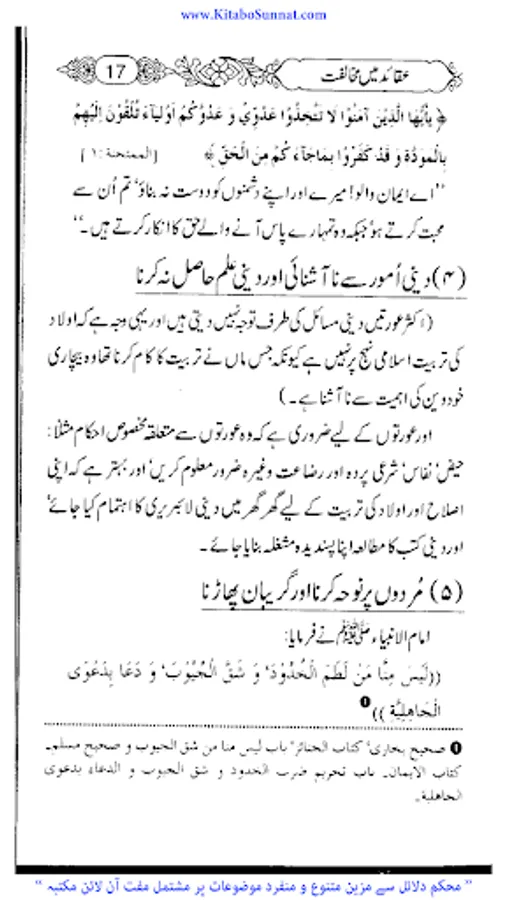 www.KitaboSunnat.com
عقائد میں مخالفت 17
﴿ يٰأَيُّهَا الَّذِيْنَ آمَنُوْا لَا تَتَّخِذُوْا عَدُوِّيْ وَ عَدُوَّكُمْ أَوْلِيَآءَ تُلْقُوْنَ إِلَيْهِمْ
بِالْمَوَدَّةِ وَ قَدْ كَفَرُوْا بِمَا جَآءَ كُمْ مِنَ الْحَقِّ ﴾ [الممتحنة : ١]
’’اے ایمان والو! میرے اور اپنے دشمنوں کو دوست نہ بناؤ‘ تم اُن سے
محبت کرتے ہو‘ جبکہ وہ تمہارے پاس آنے والے حق کا انکار کرتے ہیں۔‘‘
(۴) دینی اُمور سے ناآشنائی اور دینی علم حاصل نہ کرنا
(اکثر عورتیں دینی مسائل کی طرف توجہ نہیں دیتی ہیں اور یہی وجہ ہے کہ اولاد
کی تربیت اسلامی نہج پر نہیں ہے کیونکہ جس ماں نے تربیت کا کام کرنا تھا وہ بیچاری
خود دین کی اہمیت سے ناآشنا ہے۔)
اور عورتوں کے لیے ضروری ہے کہ وہ عورتوں سے متعلقہ مخصوص احکام مثلاً:
حیض‘ نفاس‘ شرعی پردہ اور رضاعت وغیرہ ضرور معلوم کریں‘ اور بہتر ہے کہ اپنی
اصلاح اور اولاد کی تربیت کے لیے گھر گھر میں دینی لائبریری کا اہتمام کیا جائے‘
اور دینی کتب کا مطالعہ اپنا پسندیدہ مشغلہ بنایا جائے۔
(۵) مُردوں پر نوحہ کرنا اور گریبان پھاڑنا
امام الانبیاء ﷺ نے فرمایا:
((لَيْسَ مِنَّا مَنْ لَطَمَ الْخُدُوْدَ‘ وَ شَقَّ الْجُيُوْبَ‘ وَ دَعَا بِدَعْوَى
الْجَاهِلِيَّةِ ))❶
❶ صحیح بخاری‘ کتاب الجنائز‘ باب لیس منا من شق الجیوب و صحیح مسلم۔
کتاب الایمان۔ باب تحریم ضرب الخدود و شق الجیوب و الدعاء بدعوی
الجاهلیة۔
" محکم دلائل سے مزین متنوع و منفرد موضوعات پر مشتمل مفت آن لائن مکتبہ "